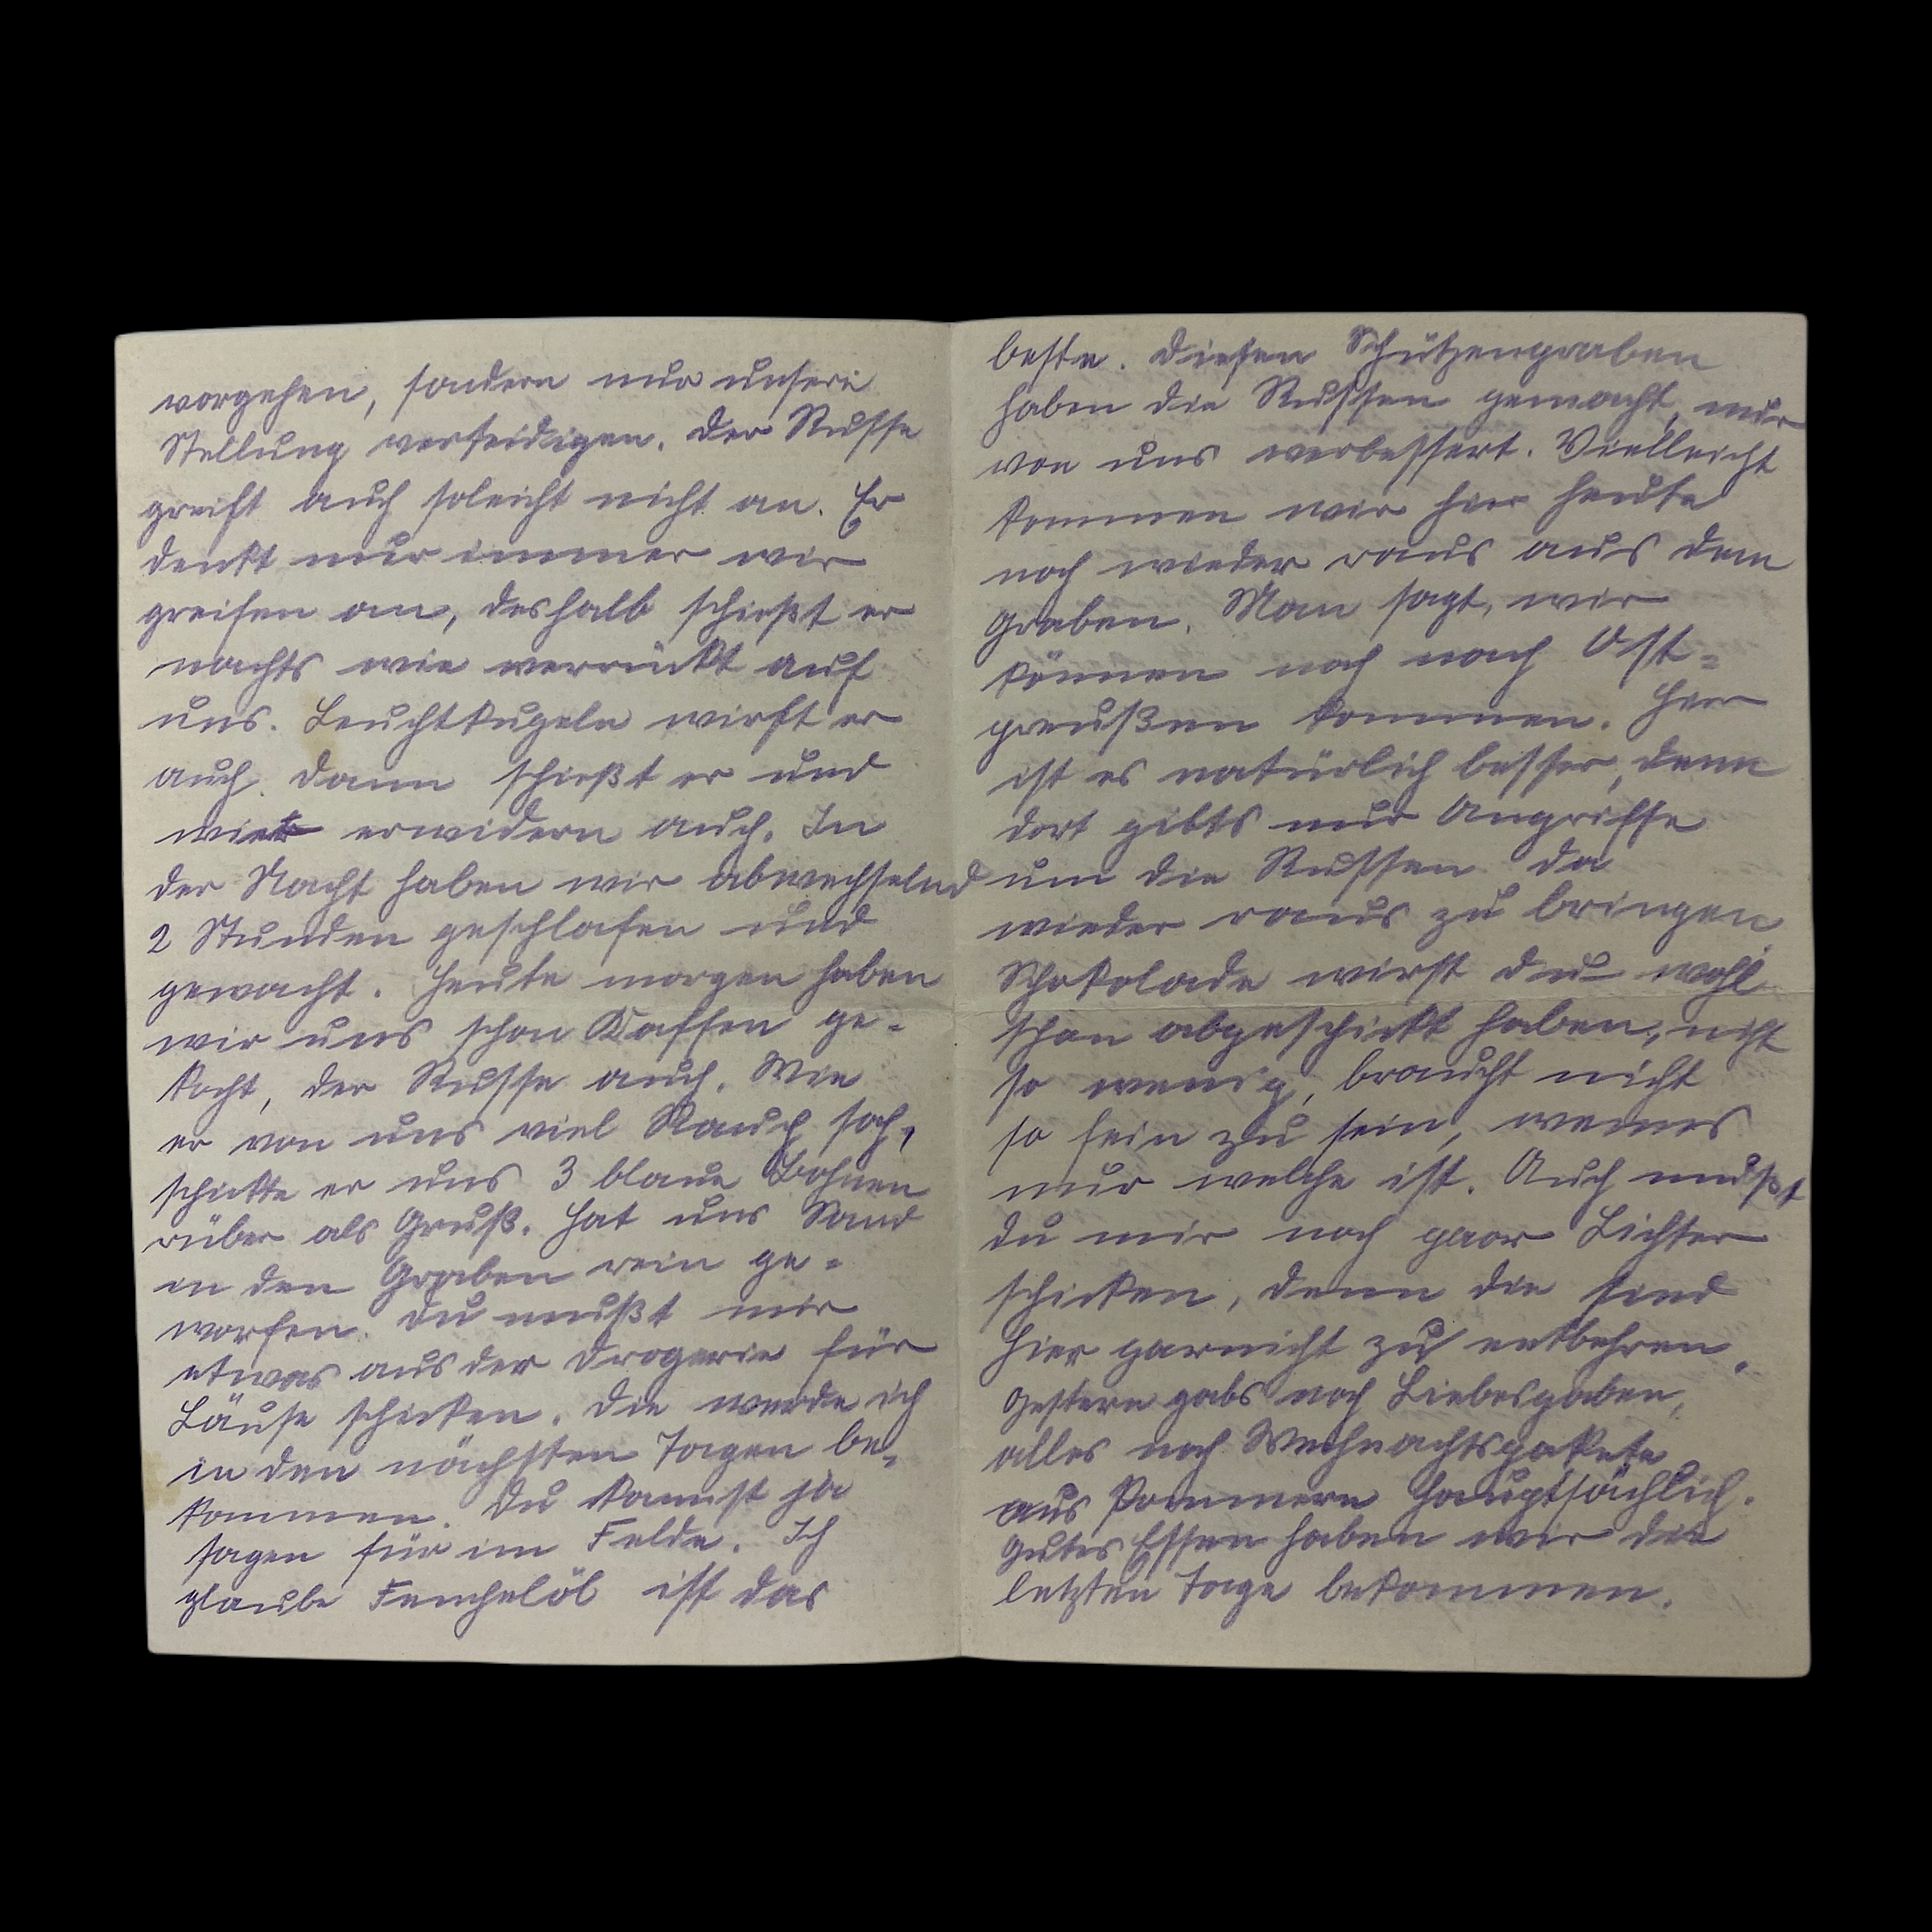 vorgehen, sondern nur unsere
Stellung verteidigen. Der Russe
greift auch soleicht nicht an. Er
denkt nur immer wir
greifen an, deshalb schießt er
nachts wie verrückt auf
uns. Leuchtkugeln wirft er
auch. Dann schießt er und
wir erwidern auch. In
der Nacht haben wir abwechselnd
2 Stunden geschlafen und
gewacht. Heute morgen haben
wir uns schon Kaffee ge-
kocht, der Russe auch. Wie
er von uns viel Rauch sah,
schickte er uns 3 blaue Bohnen
rüber als Gruß. Hat uns Sand
in den Graben rein ge-
worfen. Du mußt mir
etwas aus der Drogerie für
Läuse schicken. Die werde ich
in den nächsten Tagen be-
kommen. Du kannst ja
sagen für im Felde. Ich
glaube Fenchelöl ist das
beste. Diesen Schützengraben
haben die Russen gemacht, nur
von uns verbessert. Vielleicht
kommen wir hier heute
noch wieder raus aus dem
Graben. Man sagt, wir
können noch nach Ost-
preußen kommen. Hier
ist es natürlich besser, denn
dort gibts nur Angriffe
um die Russen da
wieder raus zu bringen.
Schokolade wirst du wohl
schon abgeschickt haben, nicht
so wenig, braucht nicht
so fein zu sein, wenns
nur welche ist. Auch mußt
du mir noch paar Lichter
schicken, denn die sind
hier garnicht zu entbehren.
Gestern gabs noch Liebesgaben,
alles noch Weihnachtspakete
aus Pommern hauptsächlich.
Gutes Essen haben wir die
letzten Tage bekommen.